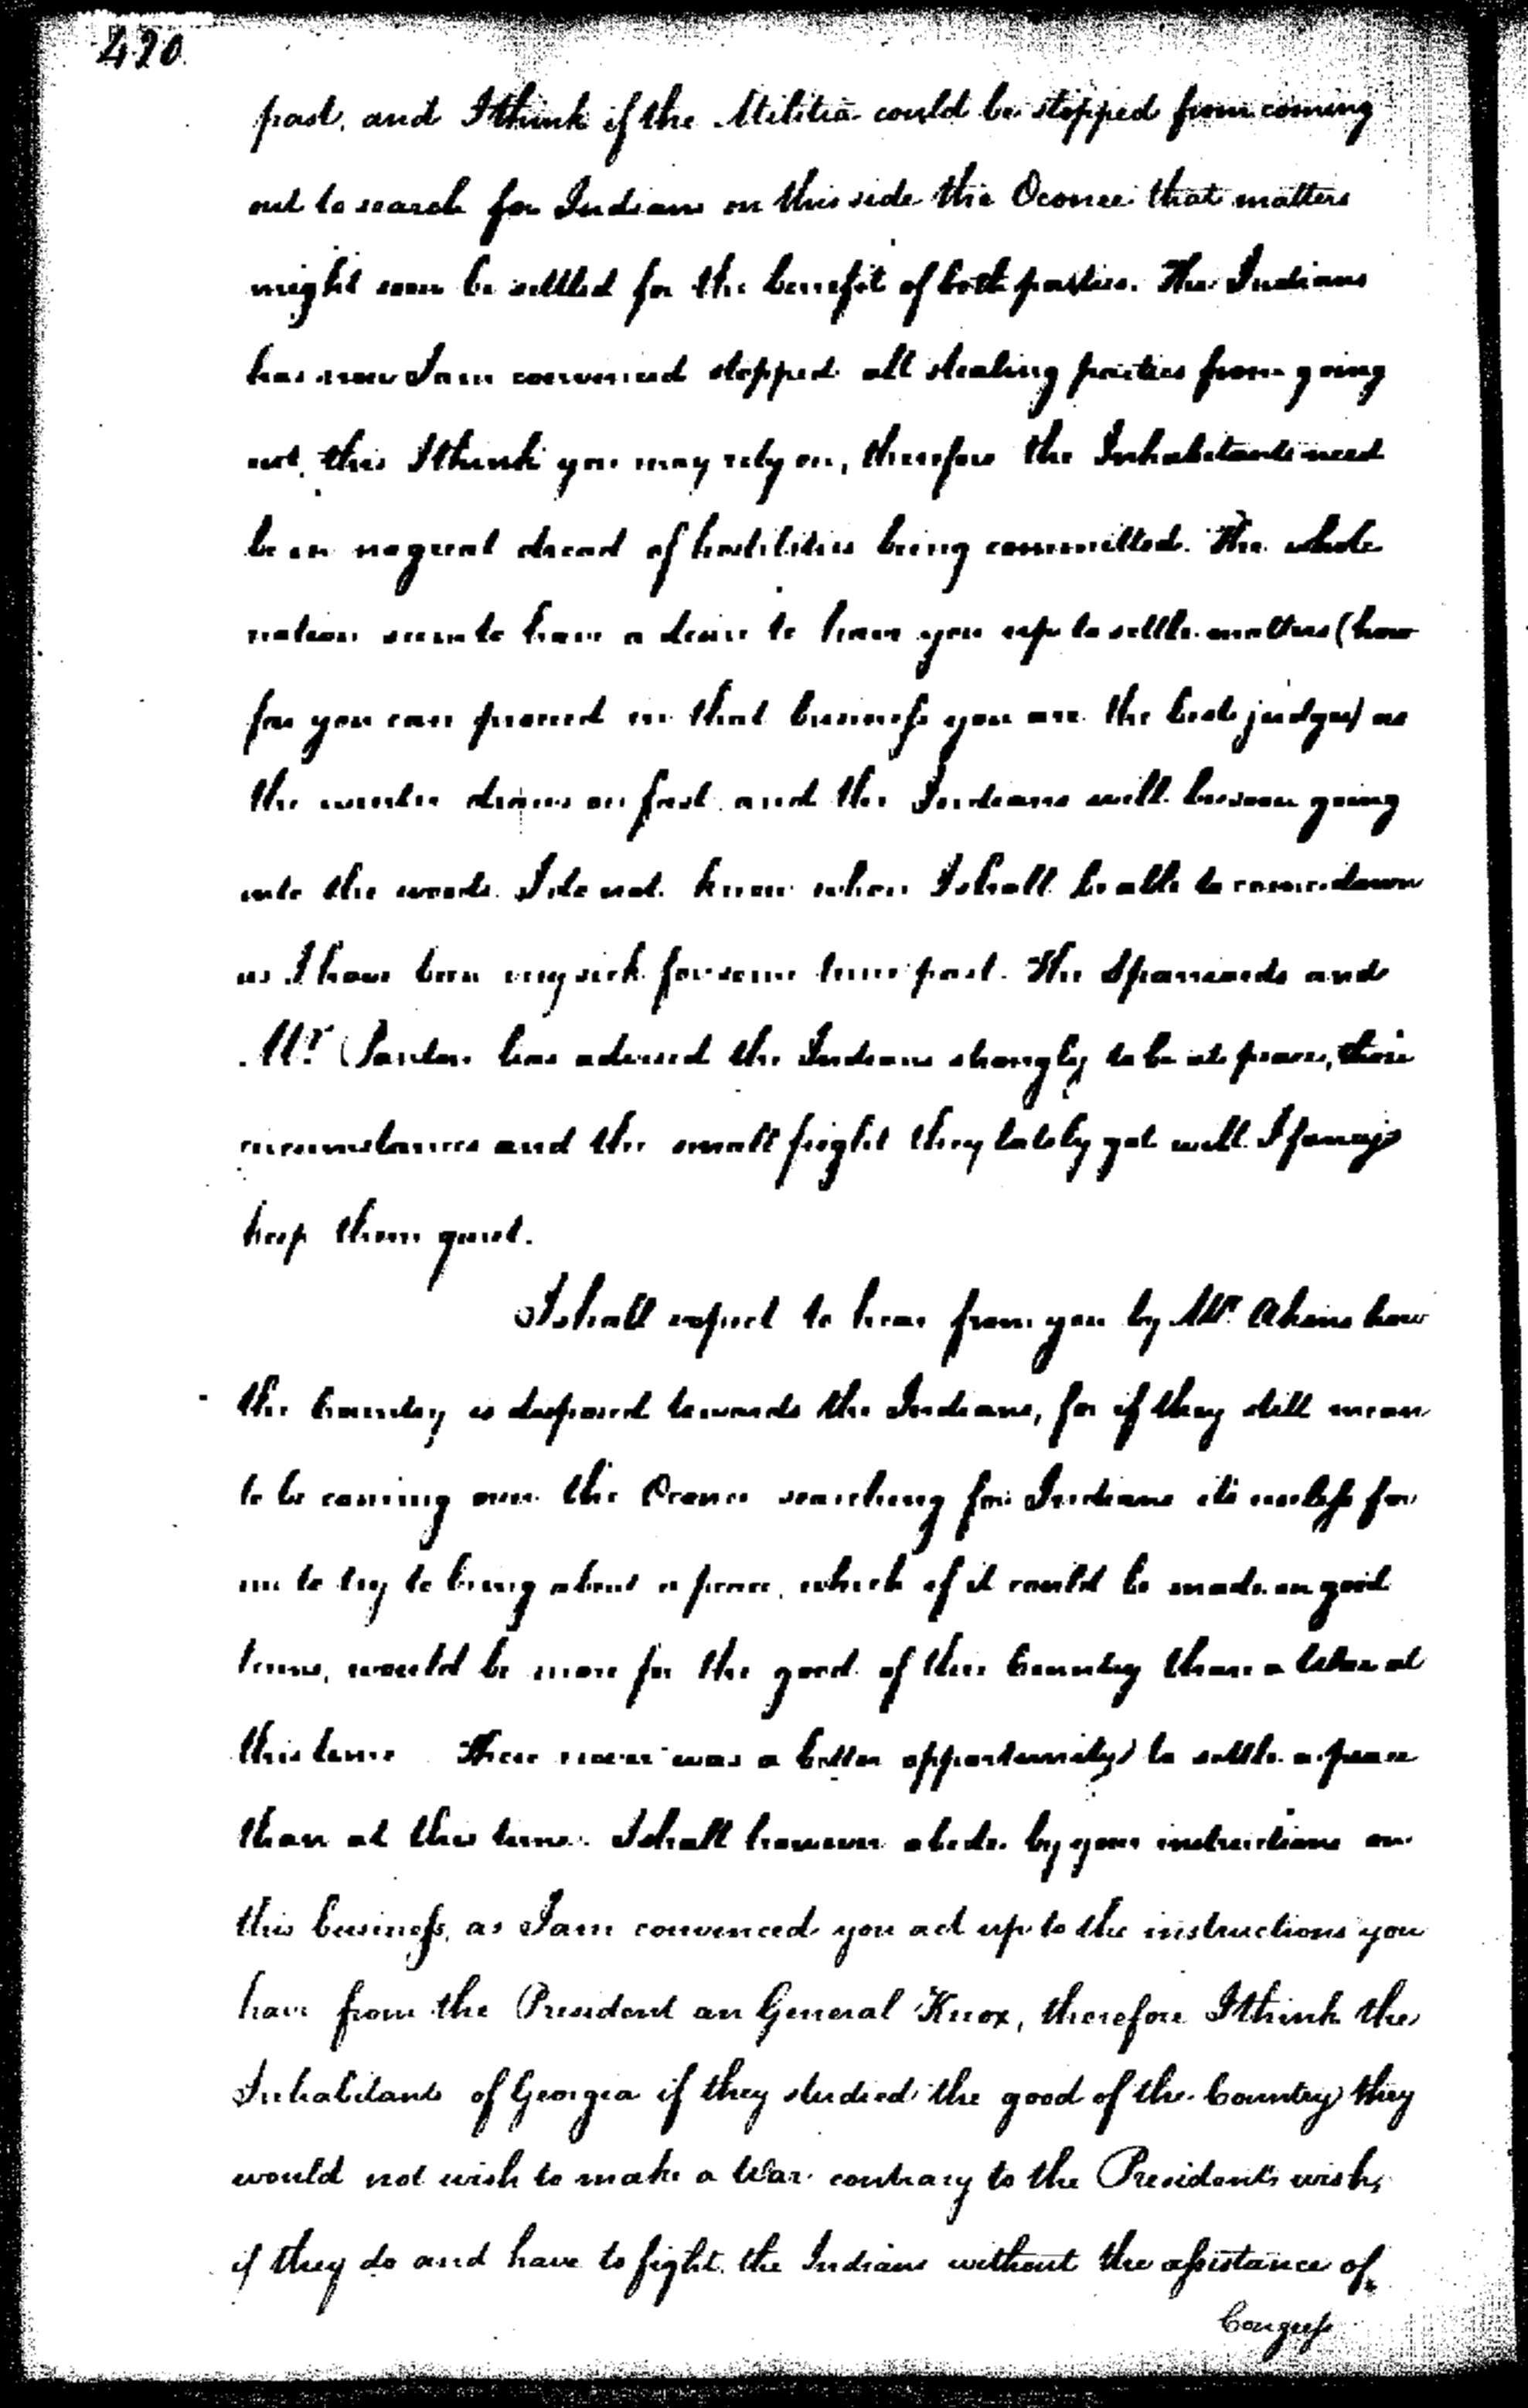 420
past, and I think if the Militia could be stopped from coming
out to search for Indians on this side the Oconee that matters
might soon be settled for the benefit of both parties. The Indians
has now I am convinced stopped all stealing parties from going
out, this I think you may rely on, therefore the Inhabitants need
be in no great dread of hostilities being committed. The whole
nation seem to have a desire to have you up to settle matters (how
far you can proceed in that business you are the best judge) as
the winter draws on fast and the Indians will be soon going
into the woods. I do not know when I shall be able to come down
as I have been very sick for some time past. The Spaniards and
Mr. Panton has advised the Indians strongly to be at peace, their
circumstances and the small fright they lately got will I fancy
keep them quiet.
I shall expect to hear from you by Mr. Akins how
the Country is disposed towards the Indians, for if they still mean
to be coming over the Oconee searching for Indians its useless for
me to try to bring about a peace, which if it could be made on good
terms, would be more for the good of this Country than a War at
this time There never was a better opportunity to settle a peace
than at this time. I shall however abide by your instructions on
this business, as I am convenced you act up to the instructions you
have from the President an General Knox, therefore I think the
Inhabitants of Georgia if they studied the good of the Country they
would not wish to make a War contrary to the President's wish,
if they do and have to fight the Indians without the assistance of
Congress